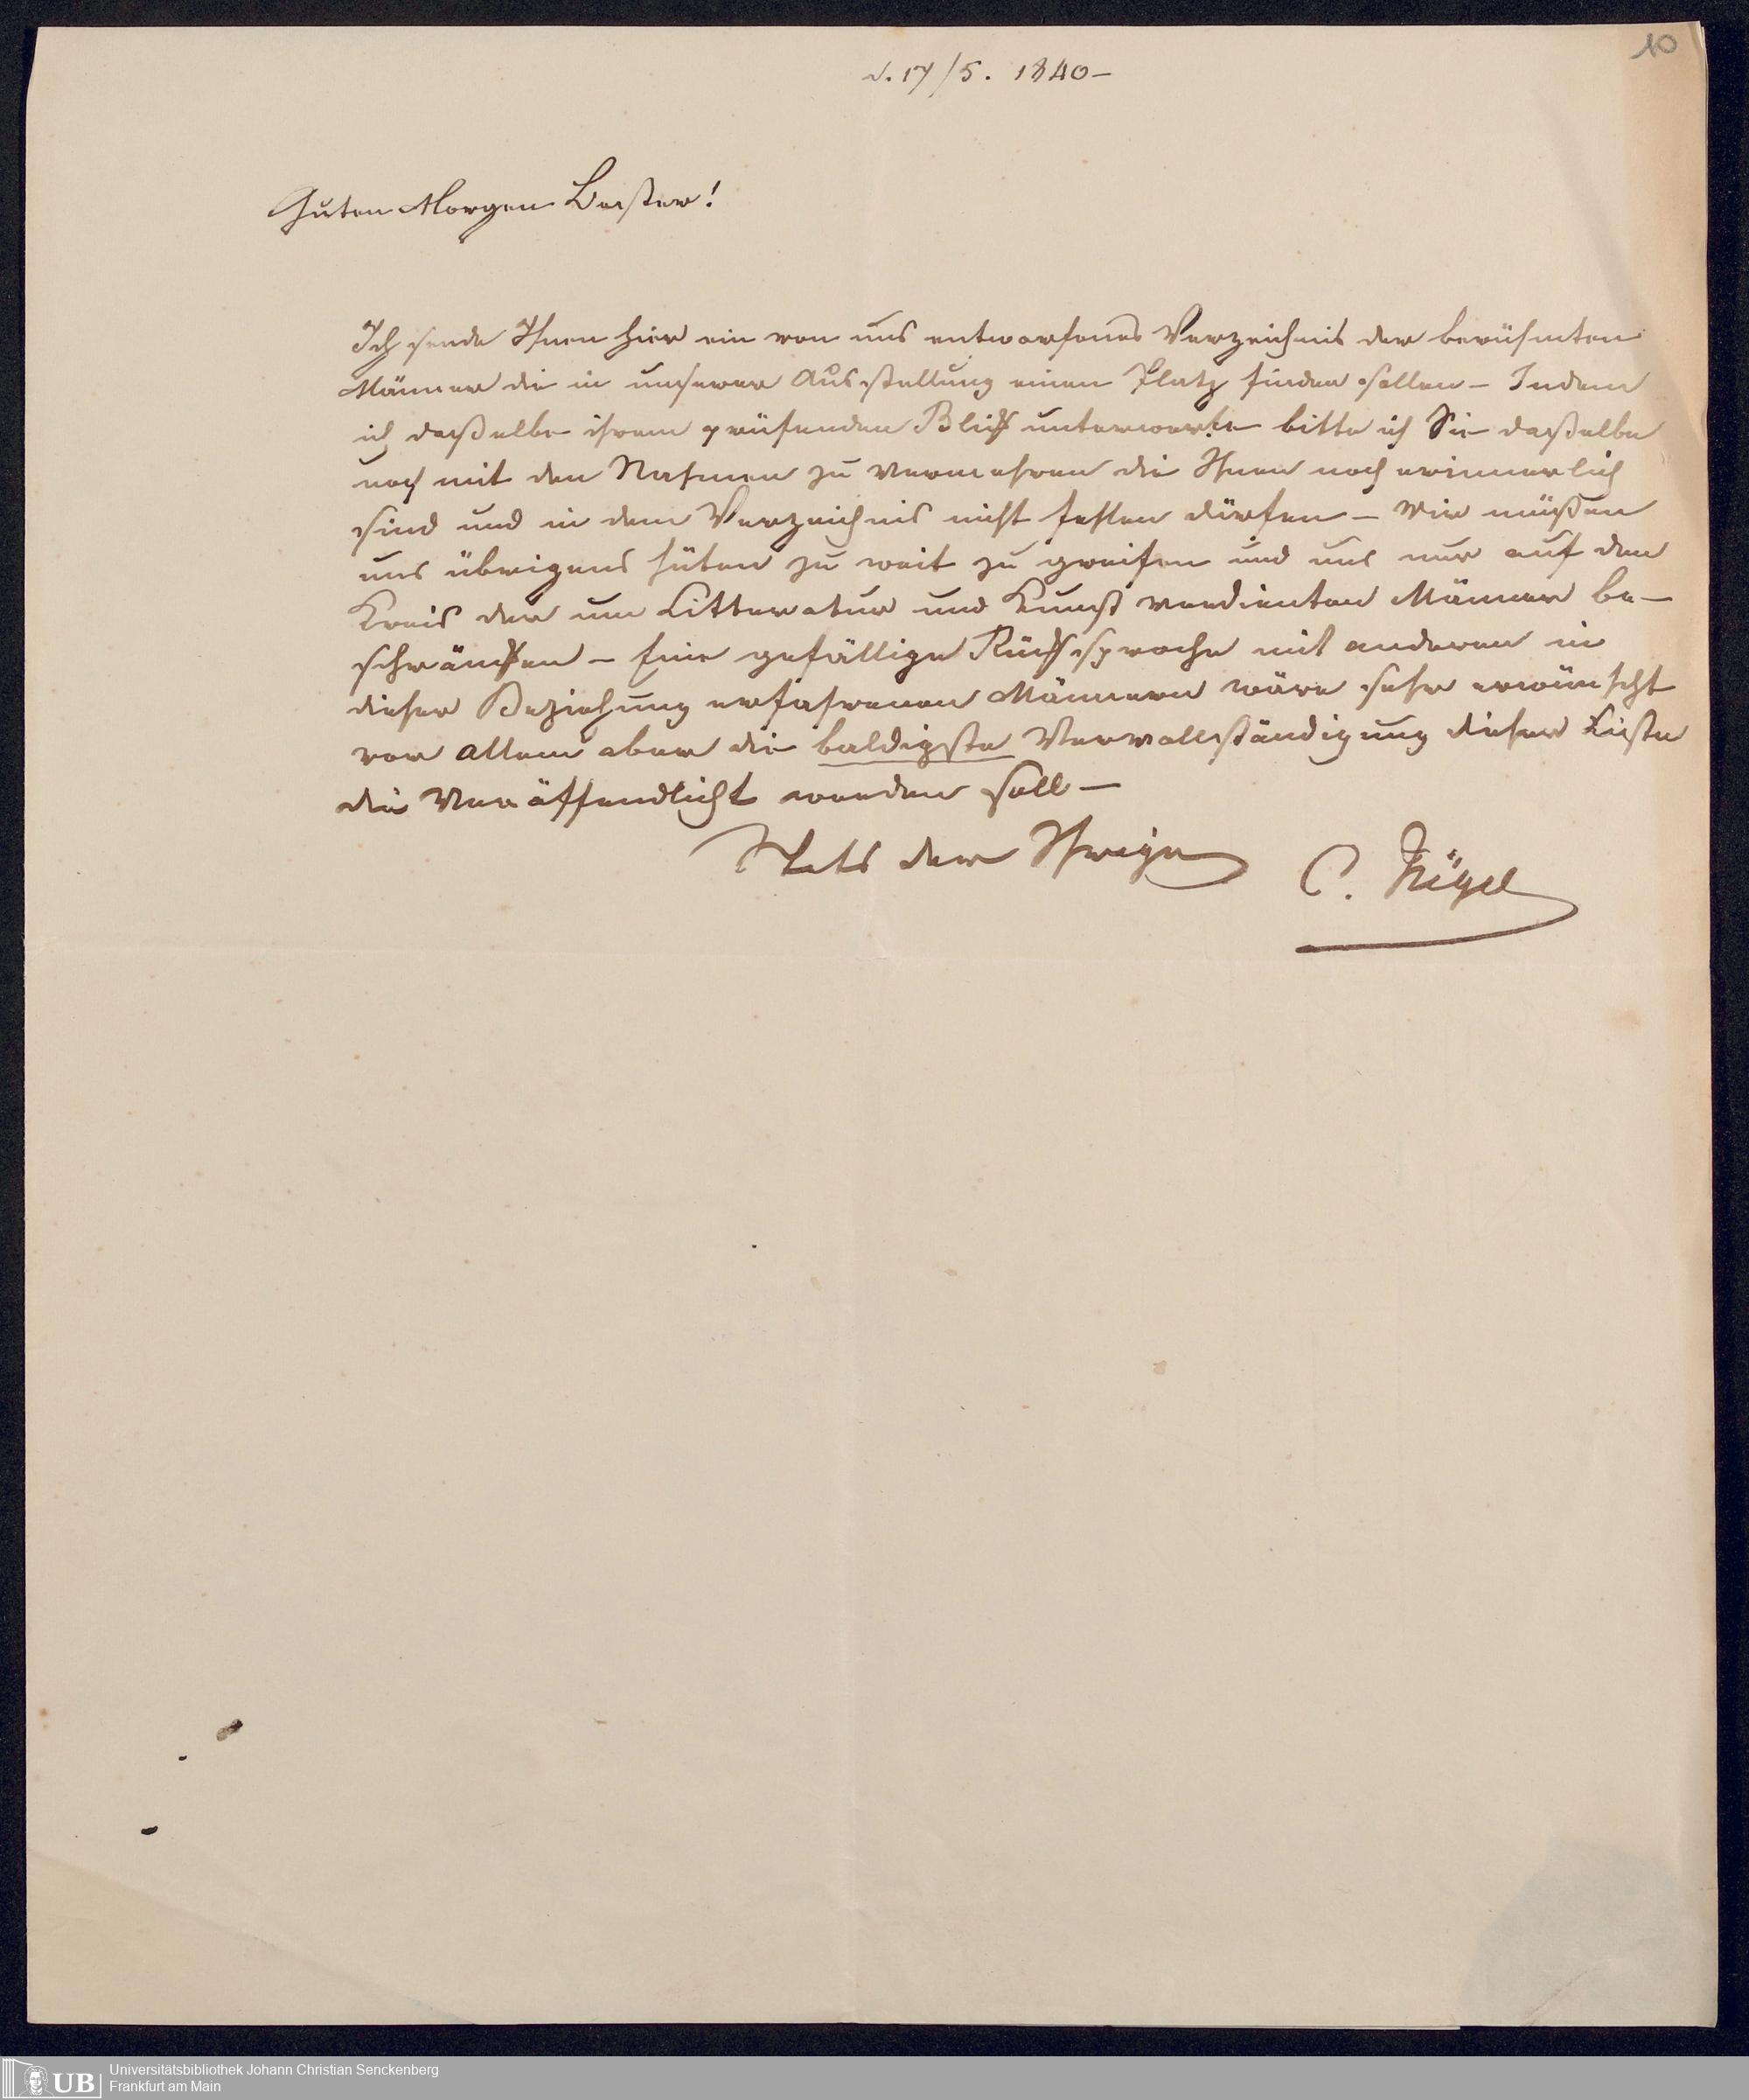 10
d. 17/5. 1840 –
Guten Morgen Bester!
Ich sende Ihnen hier ein von uns entworfenes Verzeichnis der berühmten
Männer die in unserer Ausstellung einen Platz finden sollen – Indem
ich daßelbe ihrem prüfenden Blick unterwerfe bitte ich Sie daßelbe
noch mit den Nahmen zu vermehren die Ihnen noch erinnerlich
sind und in dem Verzeichnis nicht fehlen dürfen – Wir müßen
uns übrigens hüten zu weit zu greifen und uns nur auf den
Kreis der um Litteratur und Kunst verdienten Männer be–
schräncken – Eine gefällige Rücksprache mit anderen in
dieser Beziehung erfahrenen Männern wäre sehr erwünscht
vor allem aber die baldigste Vervollständigung dieser Liste
die Veröffendlicht werden soll –
Stets der Ihrige C. Jügel
UB Universitätsbibliothek Johann Christian Senckenberg
Frankfurt am Main